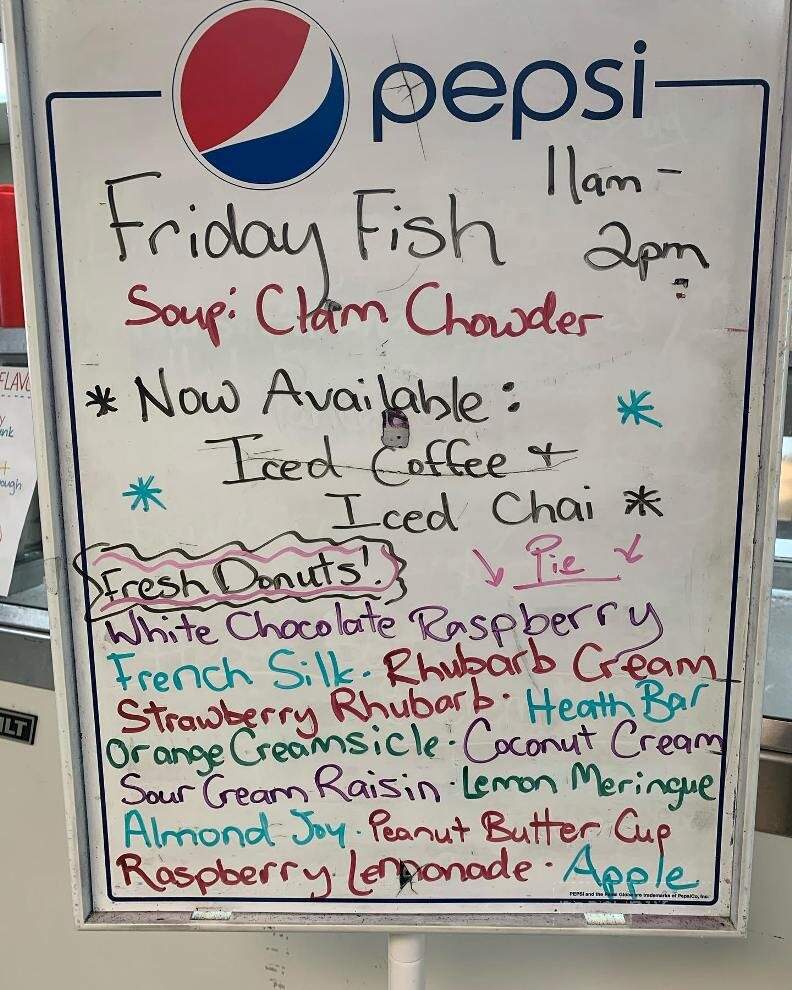 pepsi
11am -
Friday Fish 2pm
Soup: Clam Chowder
* Now Available: *
Iced Coffee &
* Iced Chai *
Fresh Donuts! Pie
White Chocolate Raspberry
French Silk · Rhubarb Cream
Strawberry Rhubarb · Heath Bar
Orange Creamsicle · Coconut Cream
Sour Cream Raisin · Lemon Meringue
Almond Joy · Peanut Butter Cup
Raspberry Lemonade · Apple
PEPSI and the Pepsi Globe are trademarks of PepsiCo, Inc.